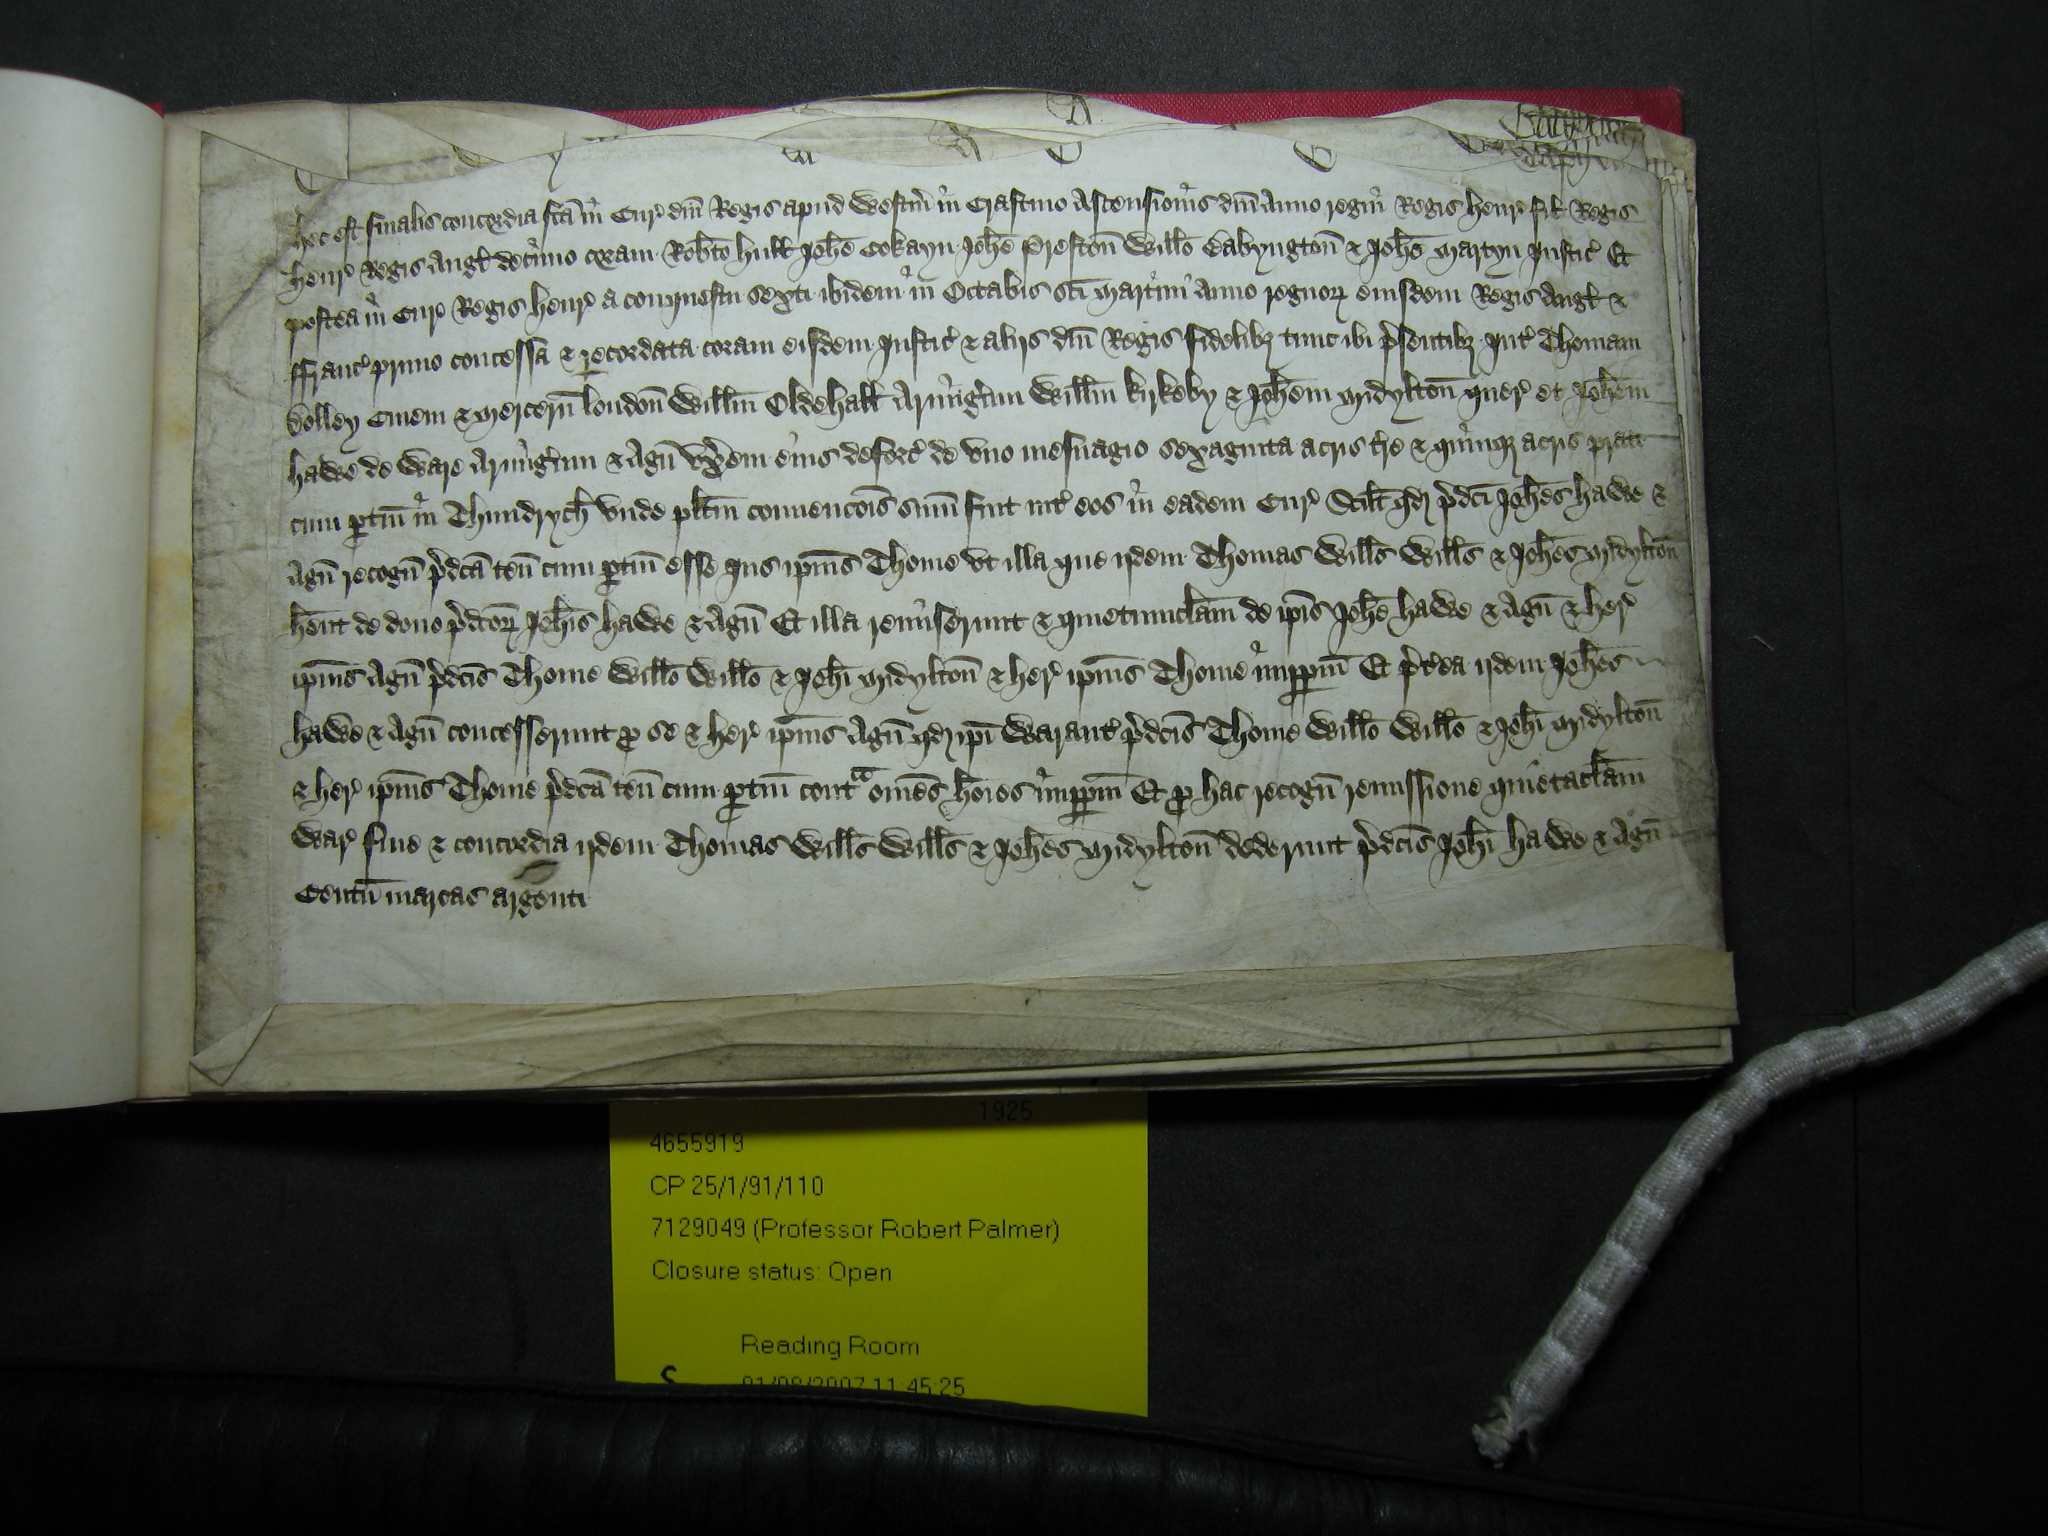 hec est finalis concordia fc̄a in Cur' dn̄i Regis apud Westm̄ in Crastino Ascensionis dn̄i Anno regni Regis Henr' fil' Regis
Henr' Regis Angl' decimo coram Rob̄to Hull' Joh̄e Cokayn Joh̄e Preston̄ Will̄o Babyngton̄ & Joh̄e Martyn Justic' Et
postea in Cur' Regis Henr' a conquestu sexti ibidem in Octabis sc̄i Martini anno regnoꝝ eiusdem Regis Angl' &
Franc' primo concessa & recordata coram eisdem Justic' & alijs dn̄i Regis fidelibꝫ tunc ibi p̄sentibꝫ Int' Thomam
Ciuem & Mercerū london̄ Will̄m Oldehall' Armig̃um Will̄m kirkeby & Joh̄em Midylton̄ quer' et Joh̄em
hawe de Ware Armig̃um & Agn̄ vx̄em eius deforc' de vno mesuagio sexaginta acris t̃re & quinqꝫ acris prati
cum ꝑtin̄ in Thundrych' vnde pl̄itm conuencōis sum̄ fuit int' eos in eadem Cur' Scil̄t qd̄ p̄dc̄i Joh̄es hawe &
Agn̄ recogn̄ p̄dc̄a ten̄ cum ꝑtin̄ esse Jus ip̄ius Thome vt illa que ijdem Thomas Will̄s Will̄s & Joh̄es Midylton̄
h̄ent de dono p̄dc̄oꝝ Joh̄is hawe & Agn̄ Et illa remiserunt & quietumclam̄ de ip̄is Joh̄e hawe & Agn̄ & her'
ip̄ius Agn̄ p̄dc̄is Thome Will̄o Will̄o & Joh̄i Midylton̄ & her' ip̄ius Thome imꝑpm̄ Et p̄t'ea ijdem Joh̄es
hawe & Agn̄ concesserunt ꝓ se & her' ip̄ius Agn̄ qd̄ ip̄i Warant' p̄dc̄is Thome Will̄o Will̄o & Joh̄i Midylton̄
& her' ip̄ius Thome p̄dc̄a ten̄ cum ꝑtin̄ contᵃ om̄es ho̅ies imꝑpm̄ Et ꝓ hac recogn̄ remissione quietaclam̄
War' fine & concordia ijdem Thomas Will̄s Will̄s & Joh̄es Midylton̄ dederunt p̄dc̄is Joh̄i hawe & Agn̄
Centū marcas argenti
1925
4655919
CP 25/1/91/110
7129049 (Professor Robert Palmer)
Closure status: Open
Reading Room
01/08/2007 11:45:25